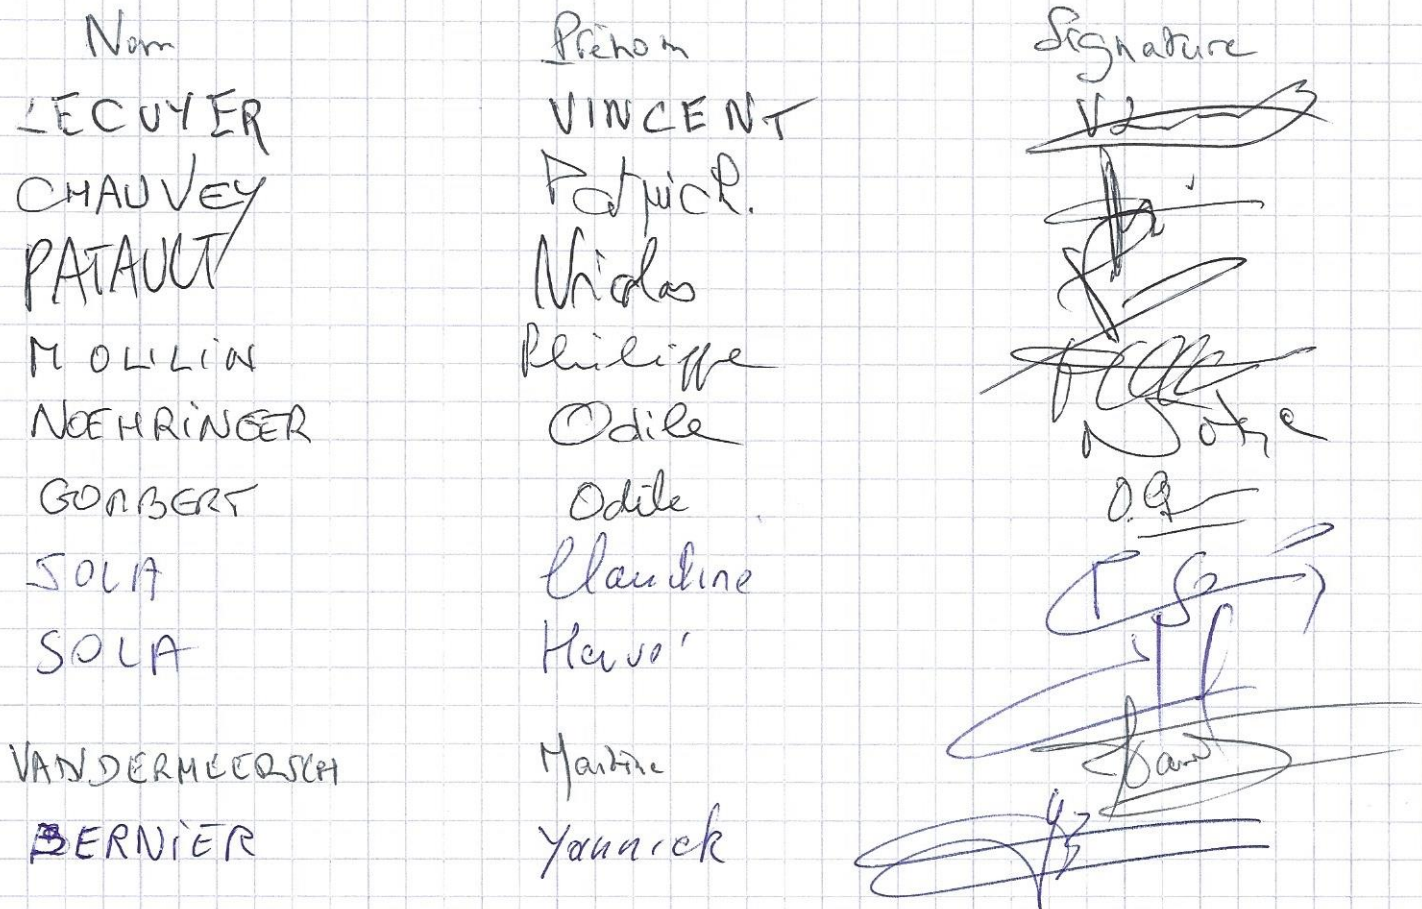 Nom Prénom Signature
LECUYER VINCENT VL
CHAUVEY Patrick.
PATAULT Nicolas
MOULIN Philippe
NOEHRINGER Odile
GORBERT Odile O.G
SOLA Claudine
SOLA Hervé
VANDERMEERSCH Martine
BERNIER Yannick